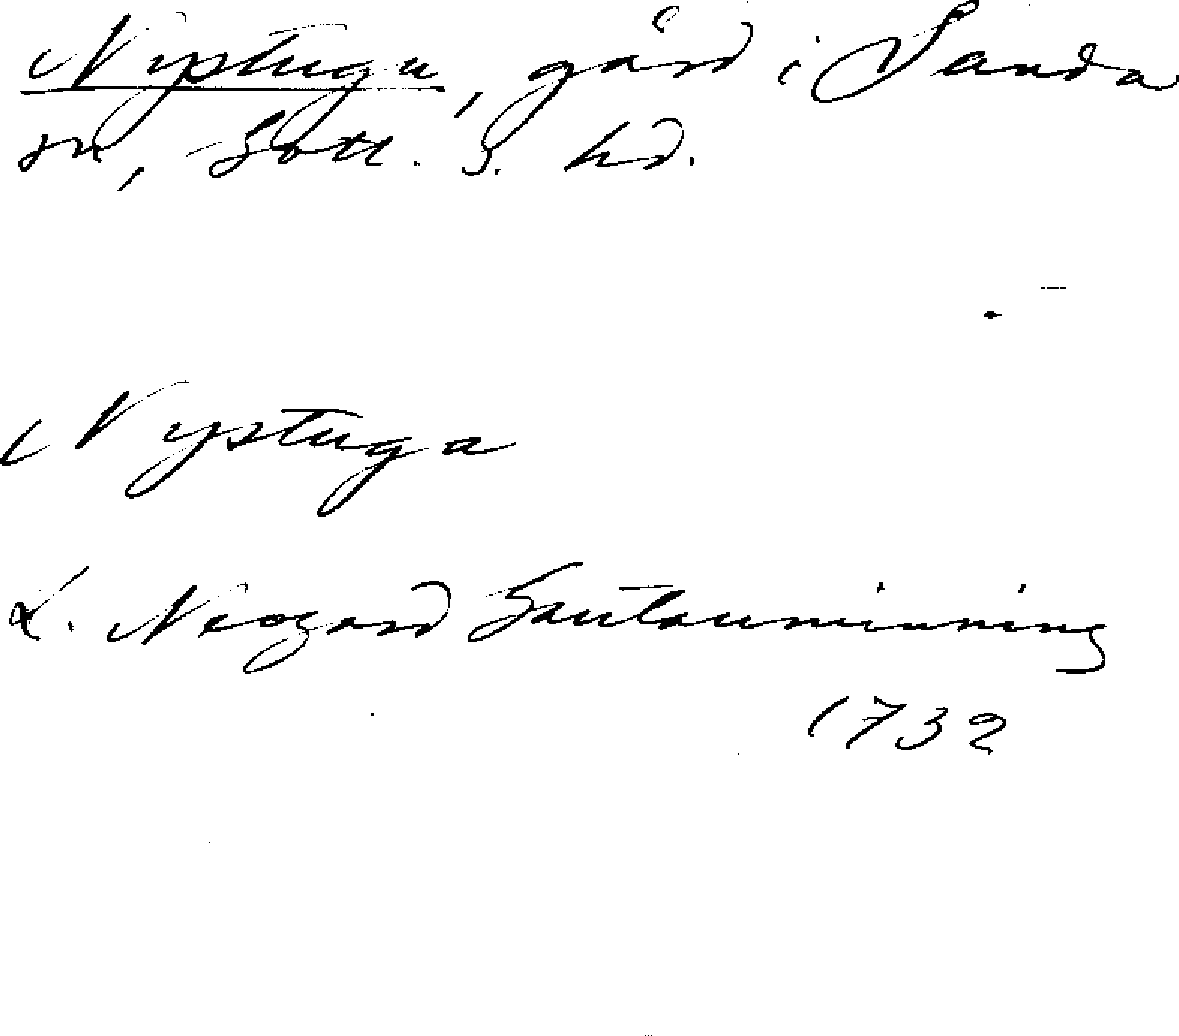 Nystuga, gård i Sanda
sn, Gotl. S. hd.
Nystuga
L. Neogard Gautauminning
1732